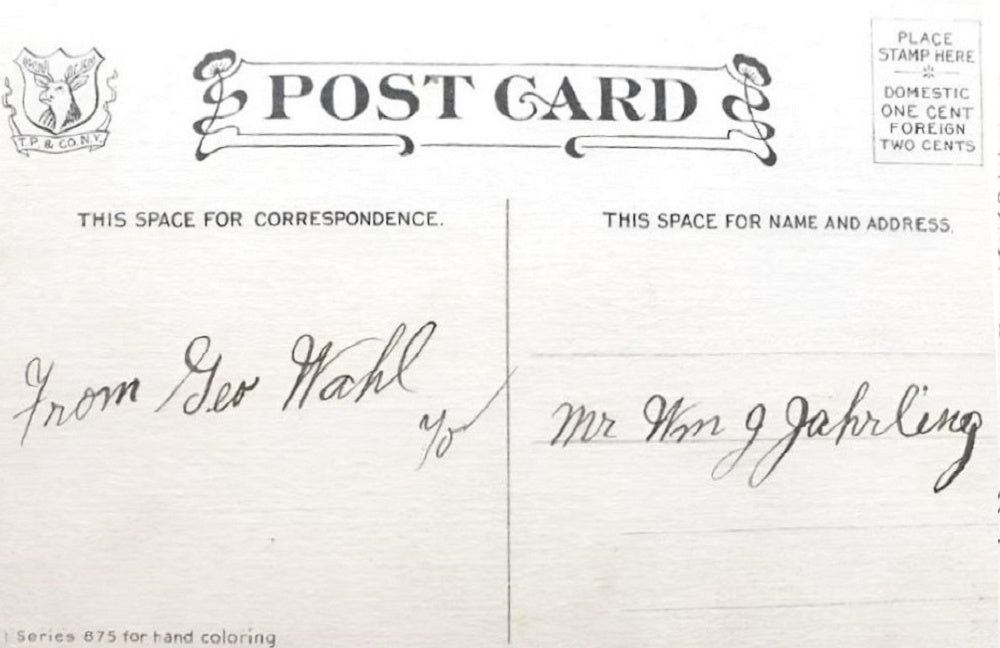 POST CARD
T.P. & CO. N.Y.
PLACE
STAMP HERE
DOMESTIC
ONE CENT
FOREIGN
TWO CENTS
THIS SPACE FOR CORRESPONDENCE.
THIS SPACE FOR NAME AND ADDRESS.
From Geo Wahl
To
Mr Wm J Jahrling
Series 875 for hand coloring